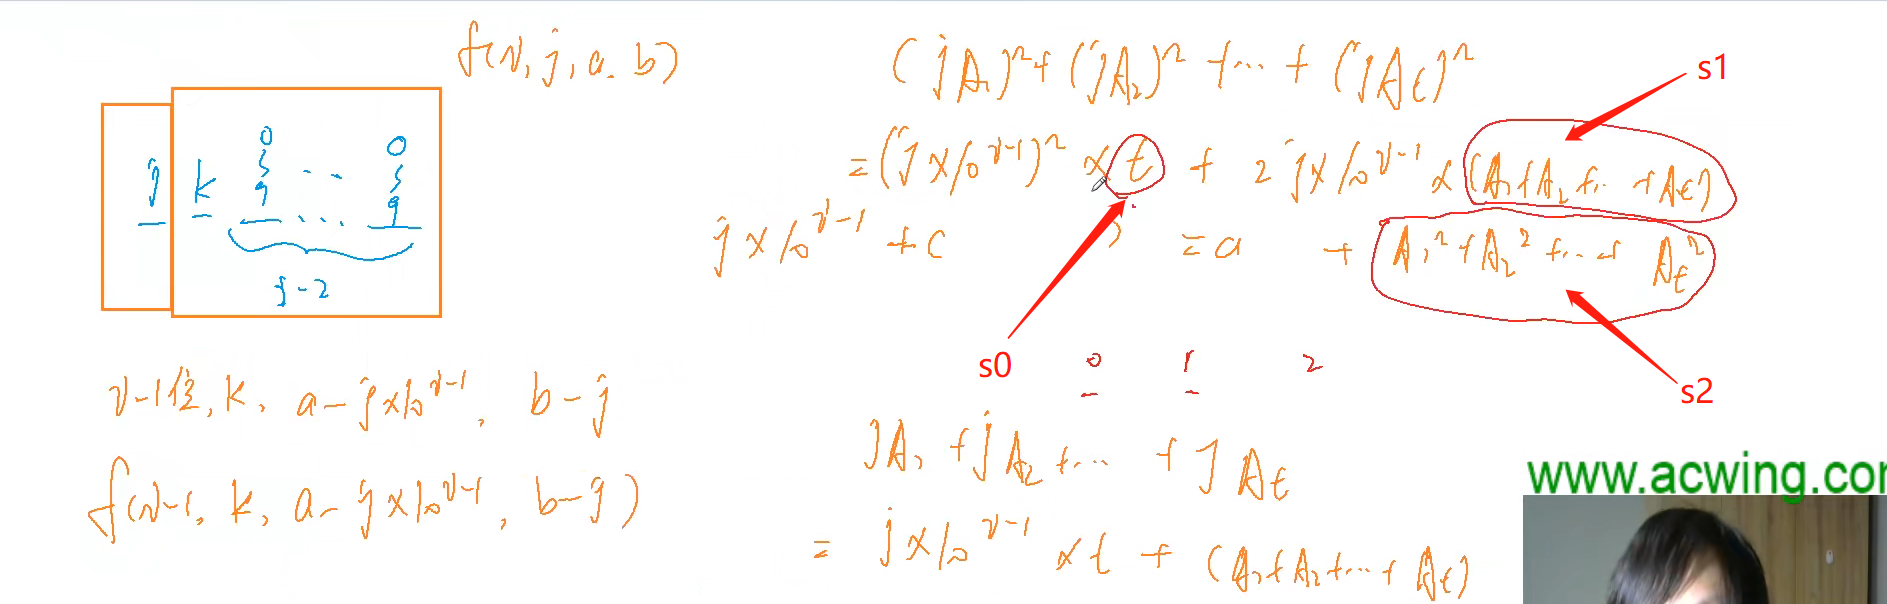 f(i, j, a, b)
j k 0 ~ 9 ... 0 ~ 9
i-2
i-1位, k, a-j×10^(i-1), b-j
f(i-1, k, a-j×10^(i-1), b-j)
(jA₁)²+(jA₂)²+...+(jAt)²
=(j×10^(i-1))²×t + 2j×10^(i-1)×(A₁+A₂+...+At)
j×10^(i-1)+c =a + A₁²+A₂²+...+At²
s1
s0
s2
0 1 2
jA₁+jA₂+...+jAt
=j×10^(i-1)×t+(A₁+A₂+...+At)
www.acwing.co